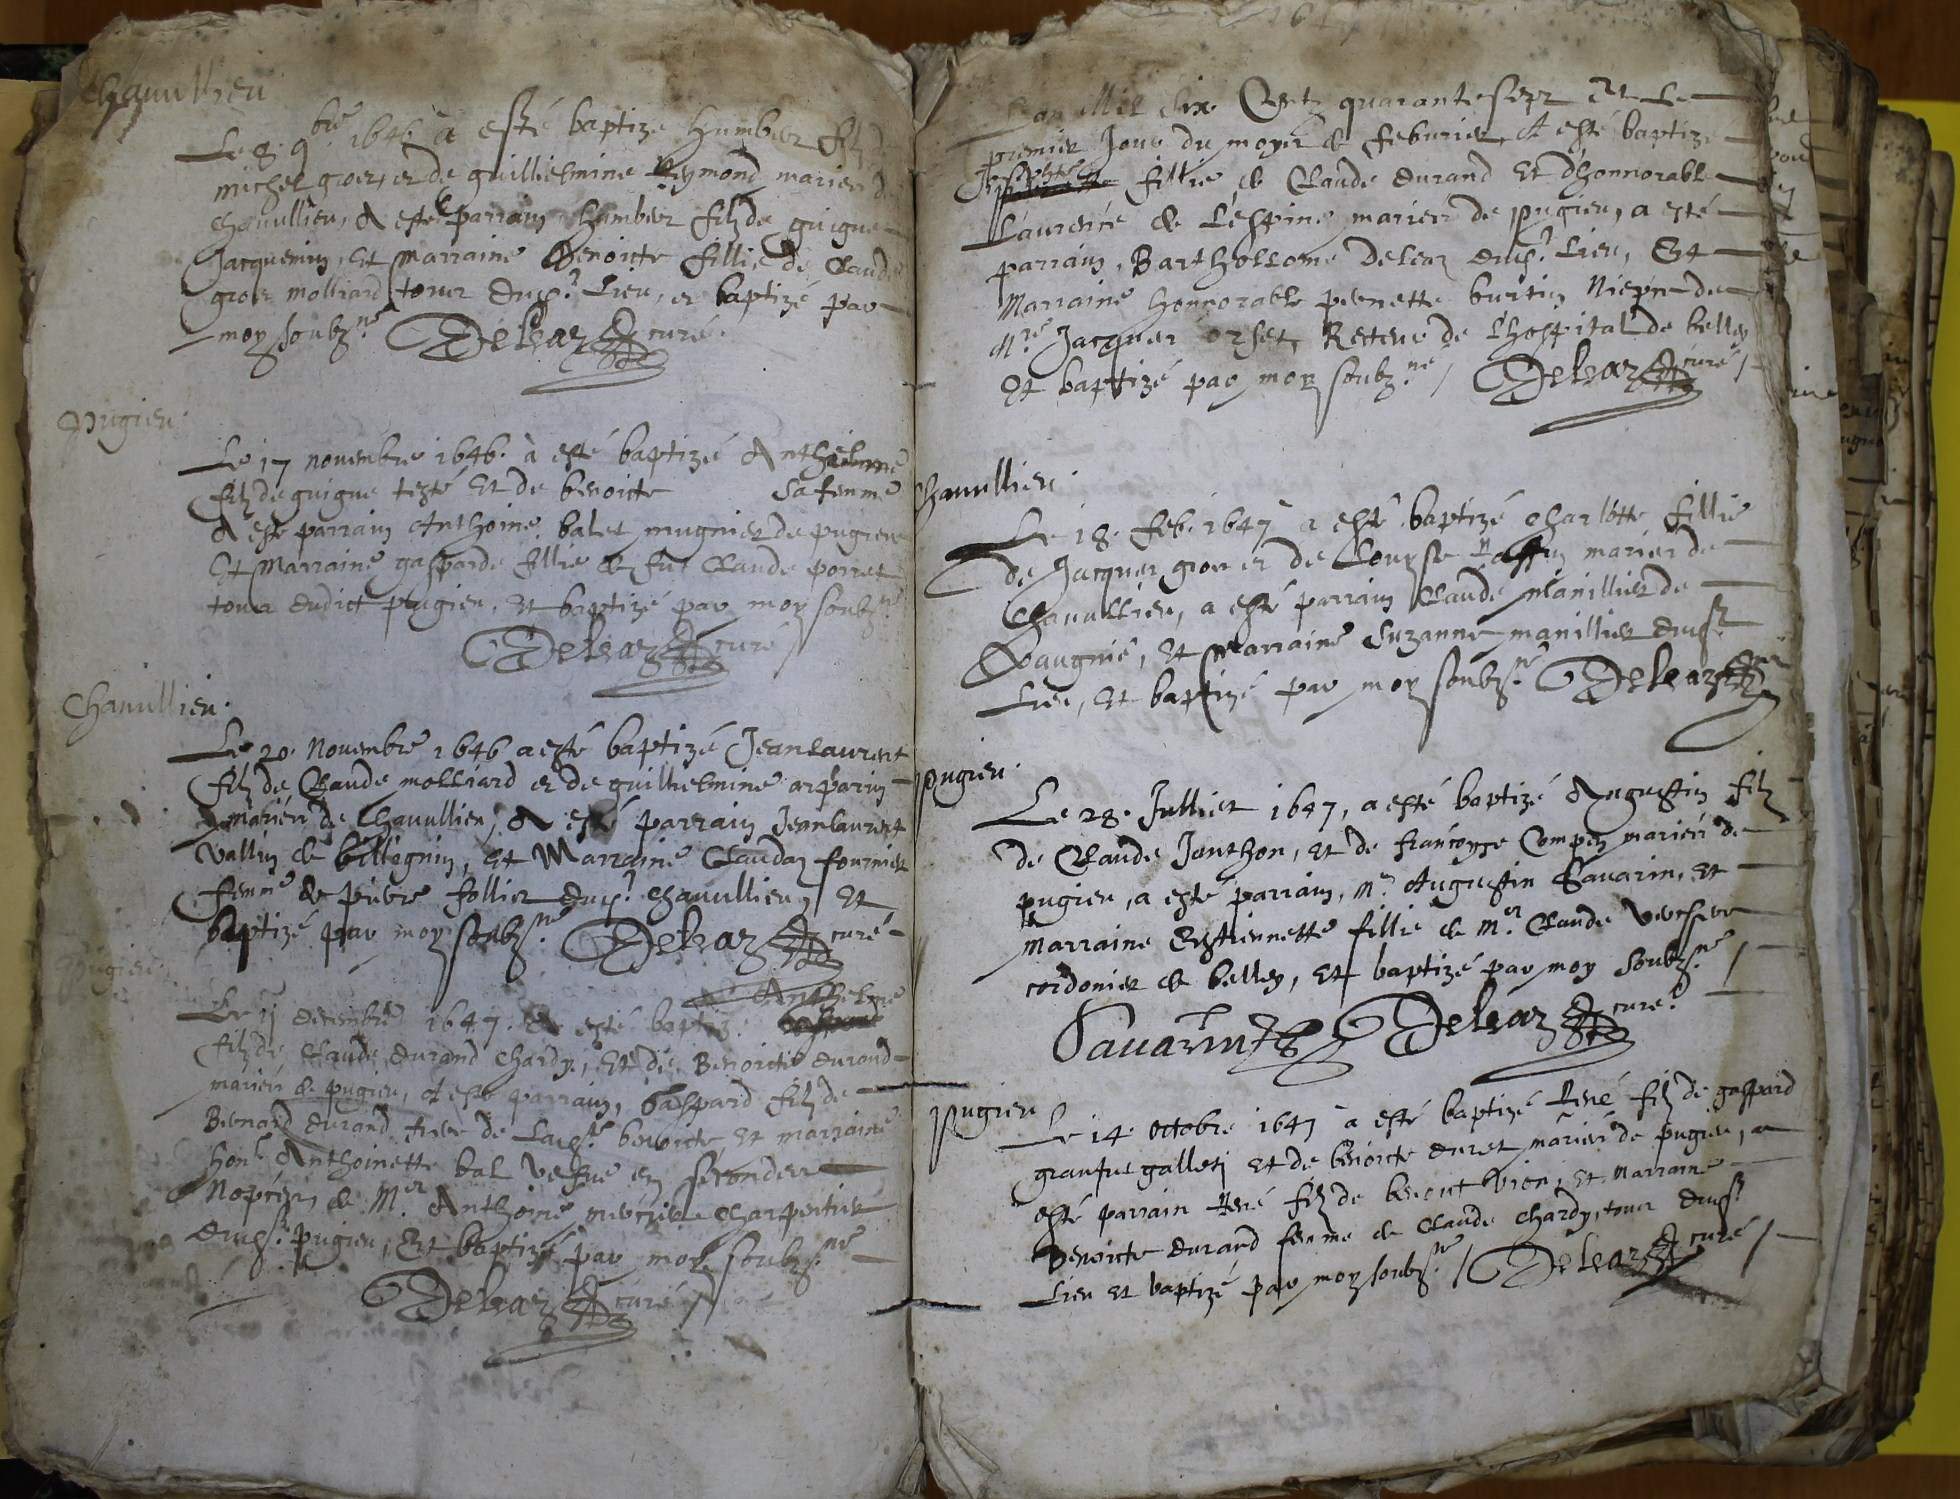 Chavullieu
Le 8. 9bre 1646 a esté baptizé humber filz de
michel gror, et de guillielmine Reymond mariez de
Chavullieu, A esté parrain humber filz de guigue
Jacquemin, et Marraine Benoicte fillie de Claude
gror molliard tour dudt Lieu, et baptizé par
moy soubzne Deleaz curé.
Pugieu.
Le 17 novembre 1646. à esté baptizé Anthelme
filz de guigue testé et de benoicte sa femme
A esté parrain Anthoine balet mugnier de pugieu
Et Marraine gasparde fillie de fut Claude porret
tour dudict pugieu, et baptizé par moy soubzné
Deleaz curé
Chavullieu.
Le 20. Novembre 1646 a esté baptizé Jean Laurent
filz de Claude molliard et de guillielmine arparin
mariéz de Chavullieu, A esté parrain Jean laurent
vallin de billegnin, et Marraine Claudaz fournier
femme de pierre follier dudt chavullieu, Et
baptizé par moy soubzné Deleaz curé
Pugieu.
Anthelme
Le 11 decembre 1647. A esté baptizé
filz de Claude durand Chardy, Et de Benoicte durand
mariéz de pugieu, A esté parrain, Gaspard filz de
Bernard durand frere de Ladte benoicte Et marraine
honle Anthoinette bal vefve en secondes
Nopces de Mer Anthoine mercier Charpentier
dudt pugieu, Et baptizé par moy soubzné
Deleaz curé
L'an Mil Six Centz quarante sept Et Le
premier Jour du moys de feburier, A esté baptizé
fillie de Claude durand Et d'honnorable
Laurence de L'espine mariez de pugieu, a esté
parrain, Barthollomé Deleaz dudt Lieu, Et
Marraine honnorable pernette burtin Niepce de
Mre Jacques orset, Recteur de L'hospital de belley
Et baptizé par moy soubzné / Deleaz curé /
Chavullieu.
Le 18. feb. 1647 a esté baptizé charlotte fillie
de Jacques gror et de Louyse mariez de
Chavullieu, a esté parrain Claude manillier de
Vaugnié, et Marraine Suzanne manillier dudt
Lieu, et baptizé par moy soubzné Deleaz curé
Pugieu.
Le 28. Jullier 1647, a esté baptizé Augustin filz
de Claude Janthon, et de francoyse Compey mariéz de
pugieu, a esté parrain, Mr Augustin Savarin, et
Marraine Estiennette fillie de Mer Claude
cordonier de belley, et baptizé par moy soubzné /
Savarin Deleaz curé
Pugieu
Le 14. octobre 1647 a esté baptizé René filz de gaspard
et de benoicte duret mariéz de pugieu, a
esté parrain René filz de benoit et Marraine
Benoicte durand femme de Claude Chardy, tour dudt
Lieu et baptizé par moy soubzné / Deleaz curé /